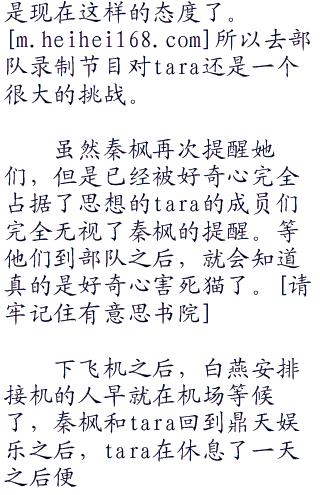 是现在这样的态度了。
[m.heihei168.com]所以去部
队录制节目对tara还是一个
很大的挑战。
虽然秦枫再次提醒她
们，但是已经被好奇心完全
占据了思想的tara的成员们
完全无视了秦枫的提醒。等
他们到部队之后，就会知道
真的是好奇心害死猫了。[请
牢记住有意思书院]
下飞机之后，白燕安排
接机的人早就在机场等候
了，秦枫和tara回到鼎天娱
乐之后，tara在休息了一天
之后便